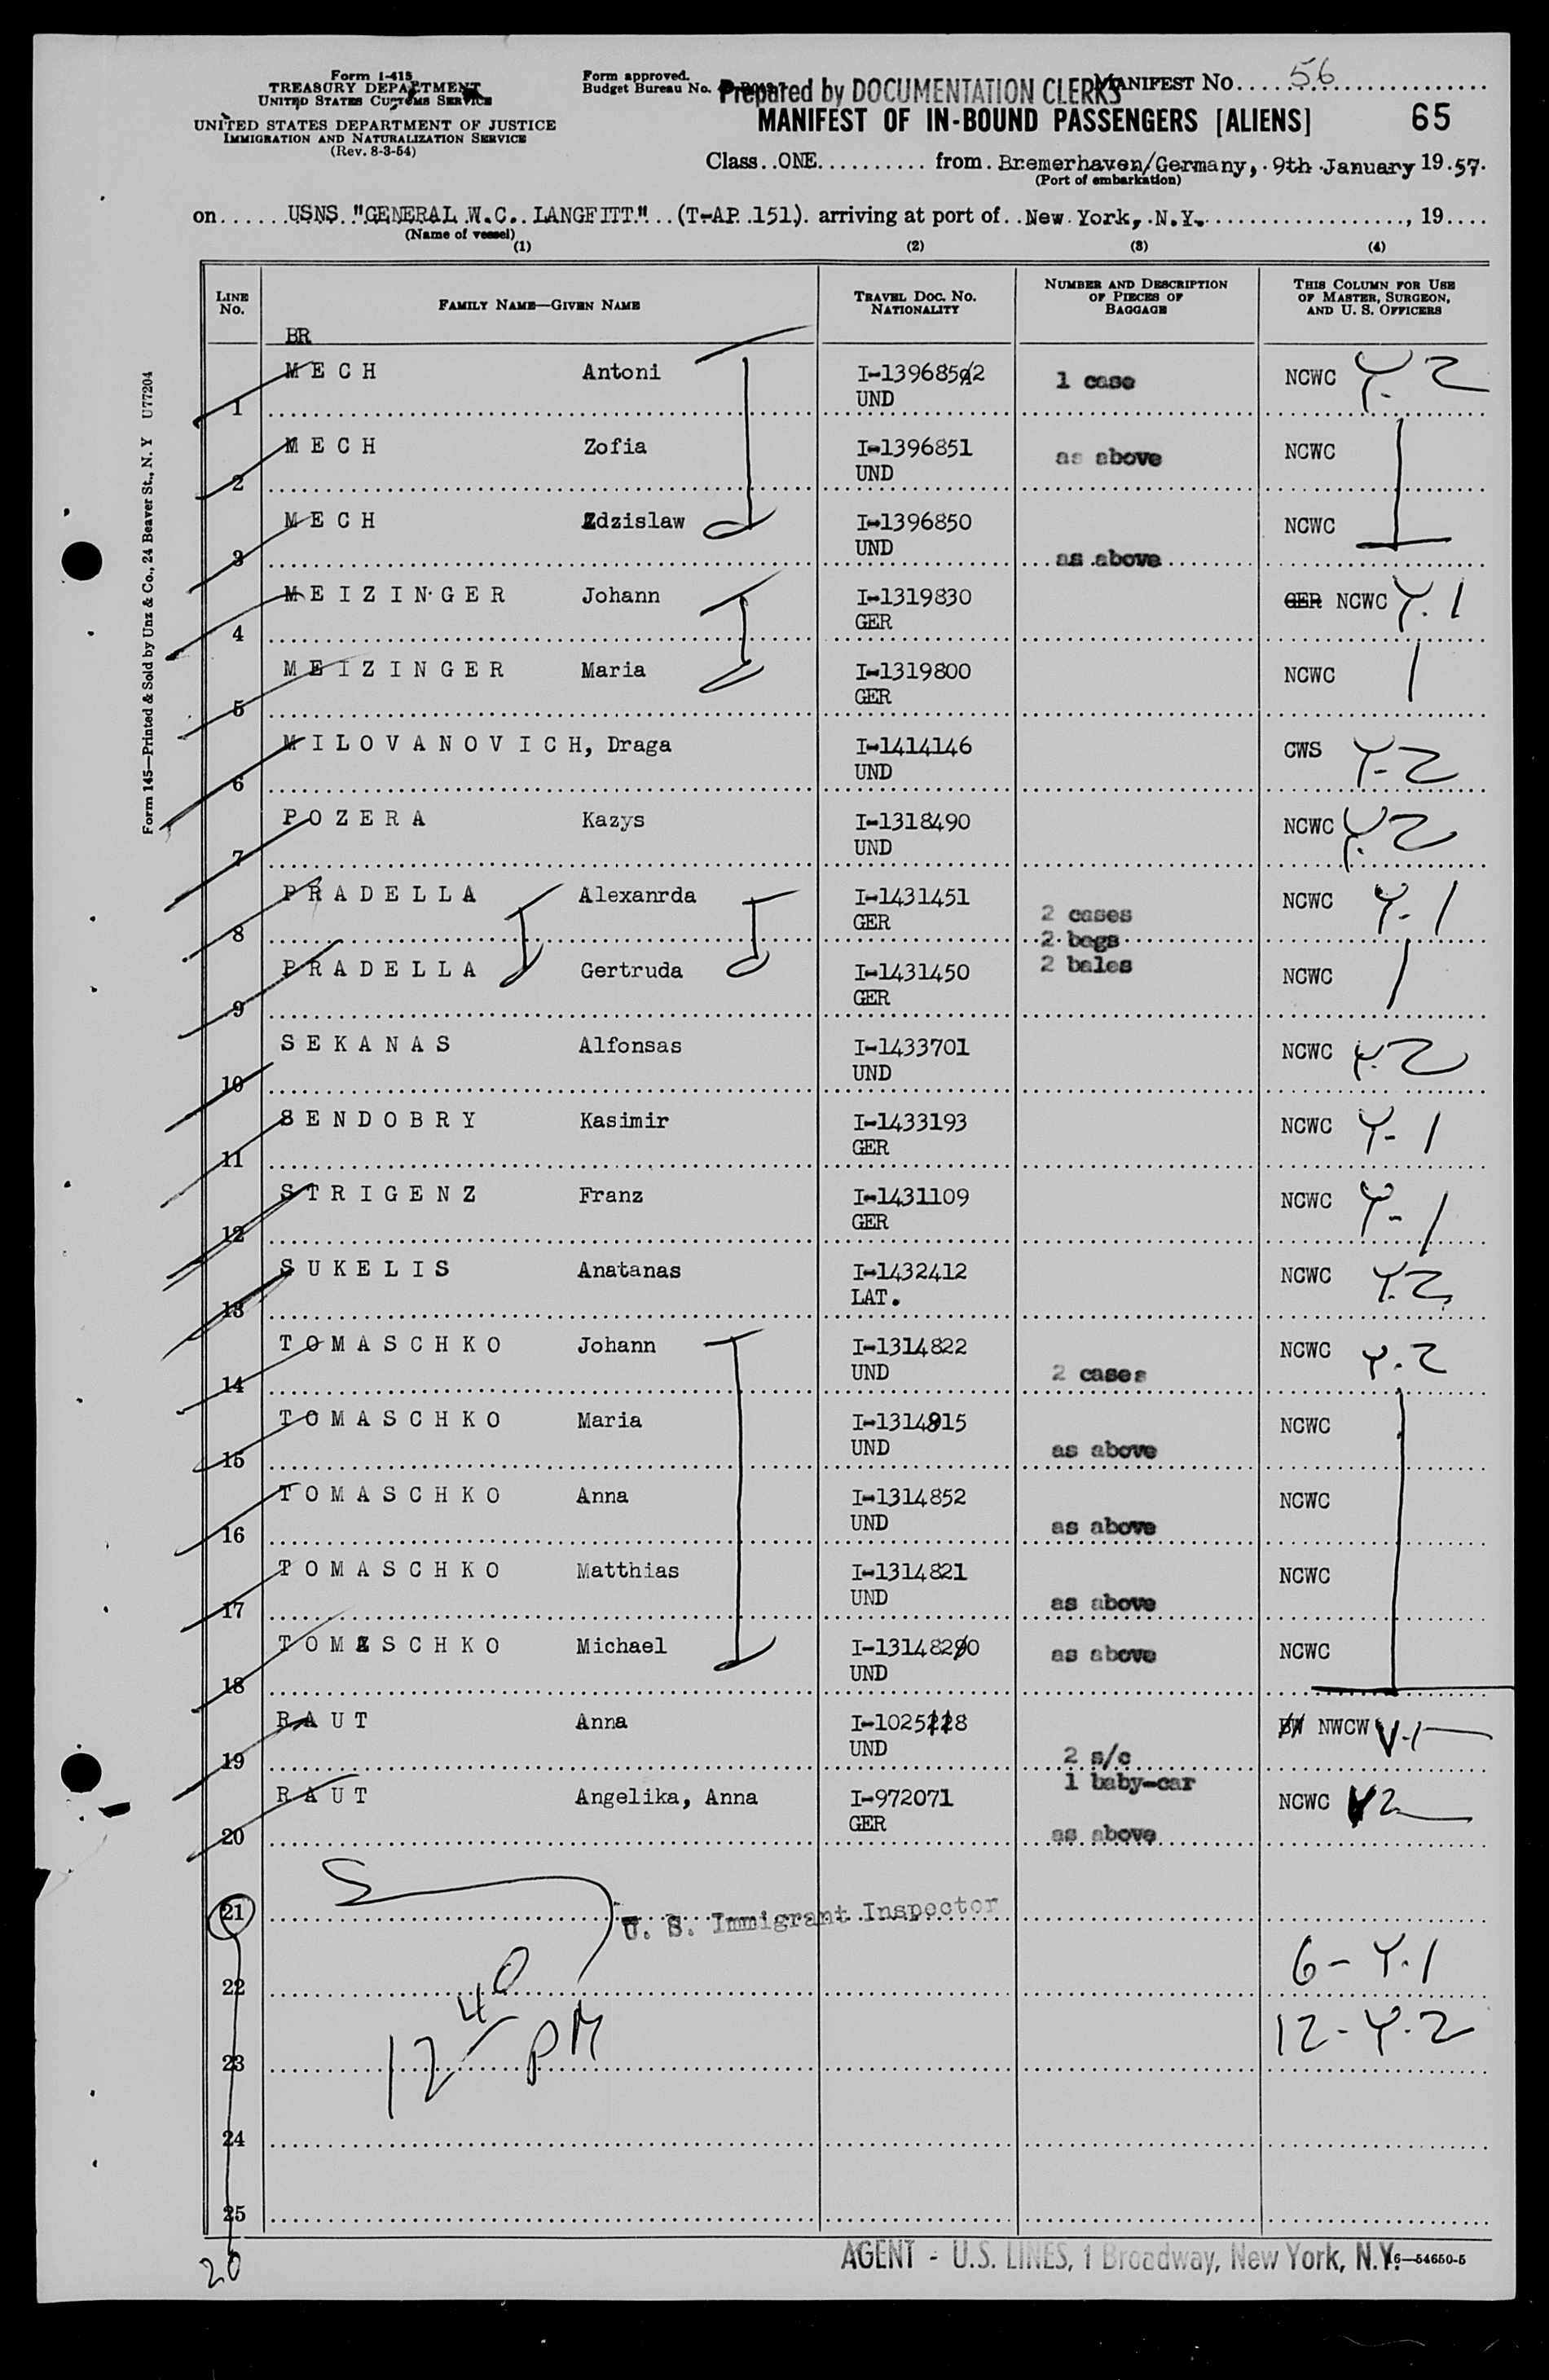 Form I-415
TREASURY DEPARTMENT
UNITED STATES CUSTOMS SERVICE
UNITED STATES DEPARTMENT OF JUSTICE
IMMIGRATION AND NATURALIZATION SERVICE
(Rev. 8-3-54)
Form approved.
Budget Bureau No.
Prepared by DOCUMENTATION CLERKS
MANIFEST NO. 56
MANIFEST OF IN-BOUND PASSENGERS [ALIENS] 65
Class ONE from Bremerhaven/Germany, 9th January 1957.
(Port of embarkation)
on USNS "GENERAL W.C. LANGFITT" (T-AP 151) arriving at port of New York, N.Y., 19
(Name of vessel)
(1) (2) (3) (4)
LINE NO. FAMILY NAME—GIVEN NAME TRAVEL DOC. NO. NATIONALITY NUMBER AND DESCRIPTION OF PIECES OF BAGGAGE THIS COLUMN FOR USE OF MASTER, SURGEON, AND U. S. OFFICERS
BR
1 MECH Antoni I-1396852 UND 1 case NCWC Y-2
2 MECH Zofia I-1396851 UND as above NCWC
3 MECH Zdzislaw I-1396850 UND as above NCWC
4 MEIZINGER Johann I-1319830 GER GER NCWC Y.1
5 MEIZINGER Maria I-1319800 GER NCWC
6 MILOVANOVICH, Draga I-1414146 UND CWS Y-2
7 POZERA Kazys I-1318490 UND NCWC Y-2
8 PRADELLA Alexanrda I-1431451 GER 2 cases NCWC Y-1
2 bags
9 PRADELLA Gertruda I-1431450 GER 2 bales NCWC
10 SEKANAS Alfonsas I-1433701 UND NCWC Y-2
11 SENDOBRY Kasimir I-1433193 GER NCWC Y-1
12 STRIGENZ Franz I-1431109 GER NCWC Y-1
13 SUKELIS Anatanas I-1432412 LAT. NCWC Y.2
14 TOMASCHKO Johann I-1314822 UND 2 cases NCWC Y.2
15 TOMASCHKO Maria I-1314915 UND as above NCWC
16 TOMASCHKO Anna I-1314852 UND as above NCWC
17 TOMASCHKO Matthias I-1314821 UND as above NCWC
18 TOMASCHKO Michael I-1314820 UND as above NCWC
19 RAUT Anna UND 2 s/c NWCW
1 baby-car
20 RAUT Angelika, Anna I-972071 GER as above NCWC
21 U. S. Immigrant Inspector
22 6-Y.1
23 12 40 PM 12-Y.2
24
25
20
AGENT - U.S. LINES, 1 Broadway, New York, N.Y.
16—54650-5
Form 145—Printed & Sold by Unz & Co., 24 Beaver St., N. Y U77204